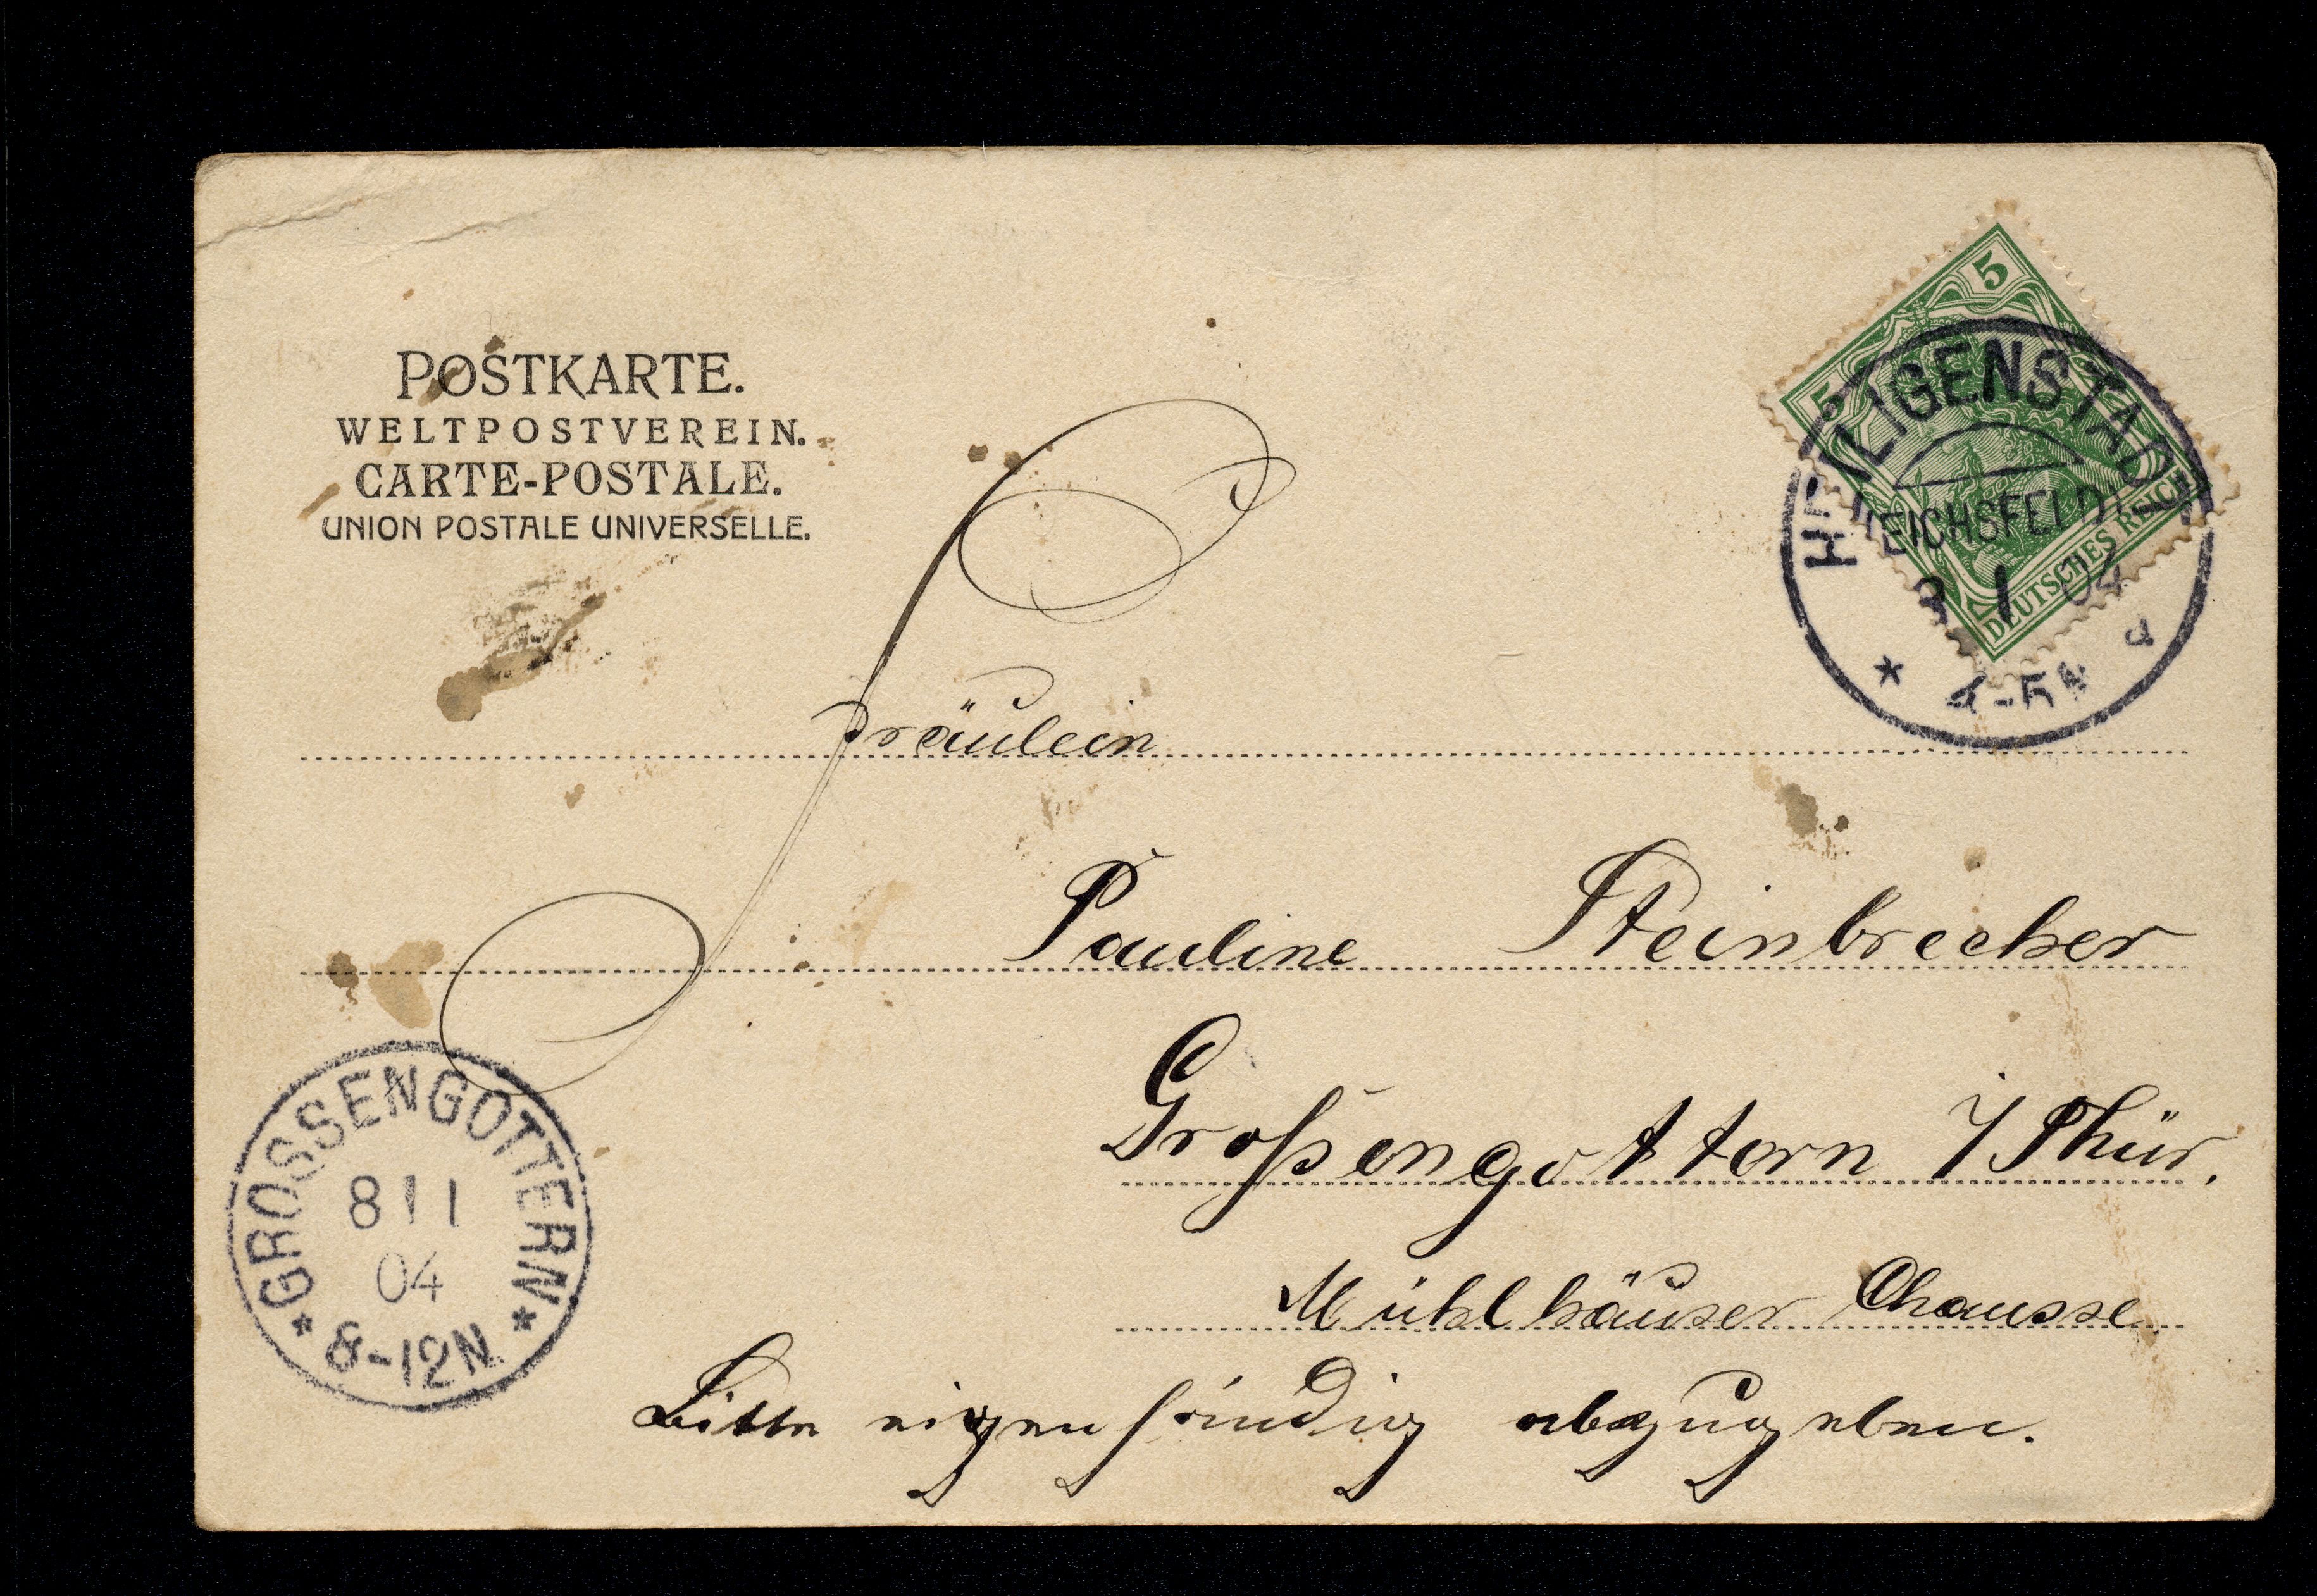 POSTKARTE.
WELTPOSTVEREIN.
CARTE-POSTALE.
UNION POSTALE UNIVERSELLE.
5
5
DEUTSCHES REICH
HEILIGENSTADT
(EICHSFELD)
1 04
* 4-5N a
Fräulein
Pauline Steinbrecher
Großengottern i/Thür.
Mühlhäuser Chausse
Bitte eigenhändig abzugeben.
* GROSSENGOTTERN *
8 1 1
04
8-12N